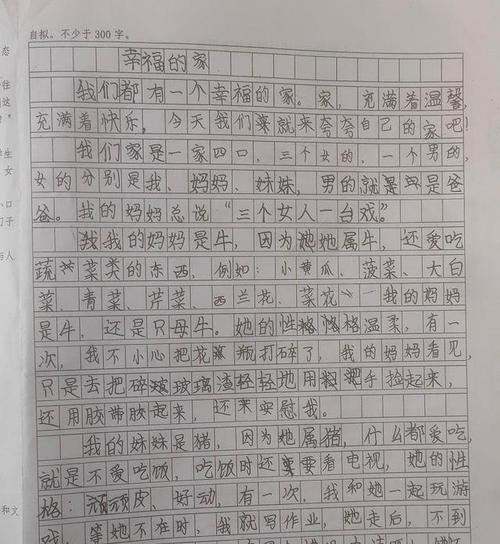 自拟。不少于300字。
幸福的家
我们都有一个幸福的家。家，充满着温馨，
充满着快乐，今天我们来就来夸夸自己的家吧！
我们家是一家四口，三个女的，一个男的，
女的分别是我、妈妈、妹妹，男的就是是爸
爸。我的妈妈总说“三个女人一台戏。”
我我的妈妈是牛，因为她她属牛，还爱吃
蔬菜类的东西，例如：小黄瓜、菠菜、大白
菜、青菜、芹菜、西兰花、菜花……我的妈妈
是牛，还是只母牛。她的性格格温柔，有一
次，我不小心把花瓶打碎了，我的妈妈看见，
只是去把碎玻玻璃渣轻轻地用手捡起来，
还用胶带胶起来，还来安慰我。
我的妹妹是猪，因为她属猪，什么都爱吃，
就是不爱吃饭，吃饭时还要看电视，她的性
格：顽顽皮、好动，有一次，我和她一起玩游
戏，等她不在时，我就写作业，她走后，不到
态
住
这
学生
女
小口
门子
与人
和文